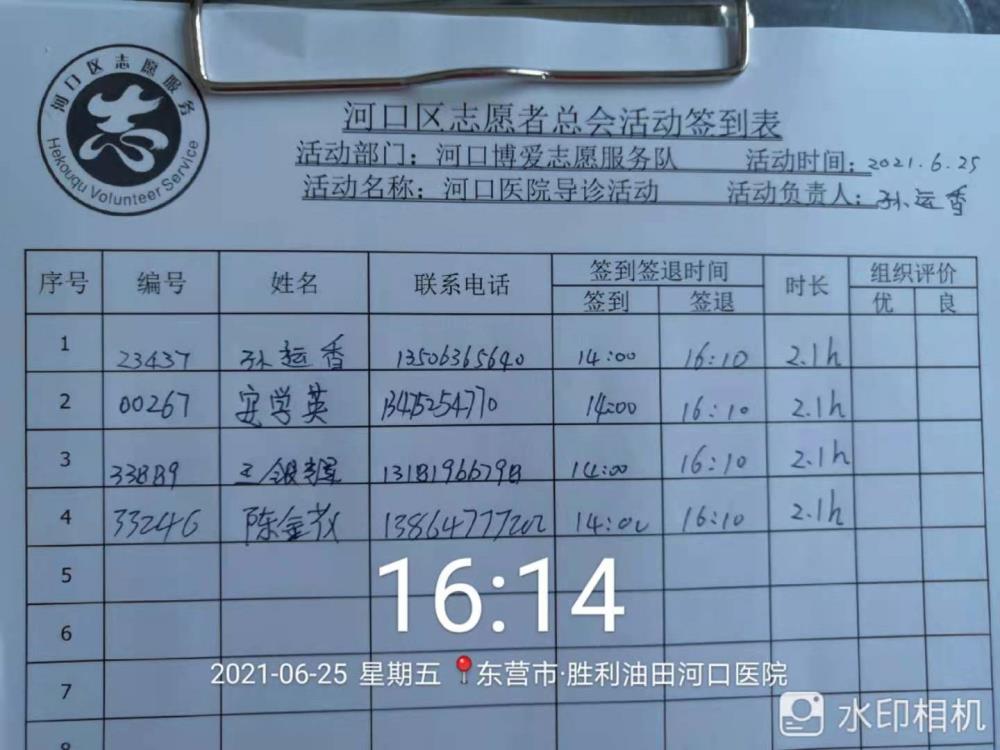 河口区志愿服务
Hekouqu Volunteer Service
河口区志愿者总会活动签到表
活动部门：河口博爱志愿服务队 活动时间：2021.6.25
活动名称：河口医院导诊活动 活动负责人：孙运香
序号 编号 姓名 联系电话 签到签退时间 时长 组织评价
签到 签退 优 良
1 23437 孙运香 13506365640 14:00 16:10 2.1h
2 00267 安学英 13475254770 14:00 16:10 2.1h
3 王银 14:00 16:10 2.1h
4 33246 陈金 13864777202 14:00 16:10 2.1h
5
6
7
8
16:14
2021-06-25 星期五 东营市·胜利油田河口医院
水印相机